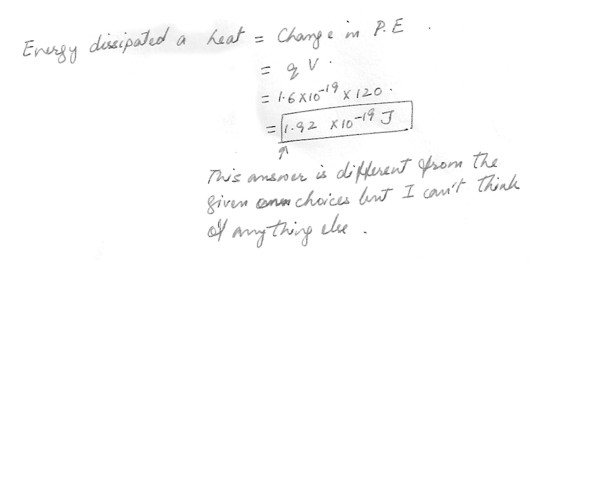 Energy dissipated a heat = Change in P.E.
= qV.
= 1.6 x 10⁻¹⁹ x 120.
= 1.92 x 10⁻¹⁹ J
↑
This answer is different from the
given choices but I can't think
of anything else.